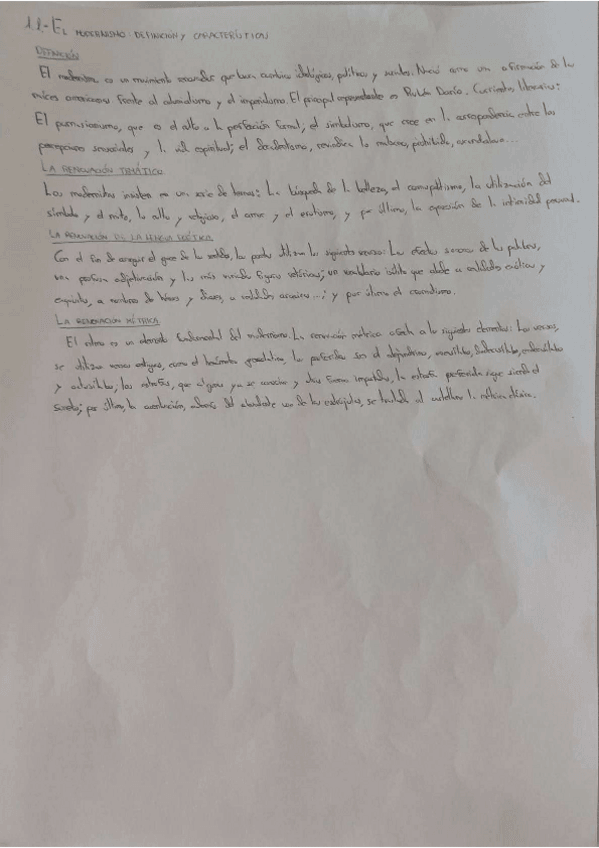 1.1.- EL MODERNISMO: DEFINICIÓN Y CARACTERÍSTICAS
DEFINICIÓN
El modernismo es un movimiento renovador que busca cambios ideológicos, políticos y sociales. Nació como una afirmación de las
raíces americanas frente al colonialismo y el imperialismo. El principal representante es Rubén Darío. Corrientes literarias:
El parnasianismo, que es el culto a la perfección formal; el simbolismo, que cree en la correspondencia entre las
percepciones sensoriales y la espiritual; el decadentismo, reivindica lo prohibido, escandaloso...
LA RENOVACIÓN TEMÁTICA
Los modernistas insisten en una serie de temas: La búsqueda de la belleza, el cosmopolitismo, la utilización del
símbolo y el mito, lo culto y religioso, el amor y el erotismo, y por último, la expresión de la intimidad personal.
LA RENOVACIÓN DE LA LENGUA POÉTICA
Con el fin de conseguir el goce de los sentidos, los poetas utilizan los siguientes recursos: Los efectos sonoros de las palabras,
una profusa adjetivación y las más variadas figuras retóricas; un vocabulario culto que alude a realidades exóticas y
exquisitas, a nombres de héroes y dioses, a realidades ...; y por último el cromatismo.
LA RENOVACIÓN MÉTRICA
El ritmo es un elemento fundamental del modernismo. La renovación métrica afecta a los siguientes elementos: Los versos,
se utilizan versos antiguos, como el hexámetro grecolatino, los preferidos son el alejandrino, eneasílabo, dodecasílabo, endecasílabo
y octosílabo; las estrofas, que algunas ya se conocían y otras fueron importadas, la estrofa preferida sigue siendo el
soneto; por último, la acentuación, además del uso de las esdrújulas, se trasladó al castellano la métrica clásica.